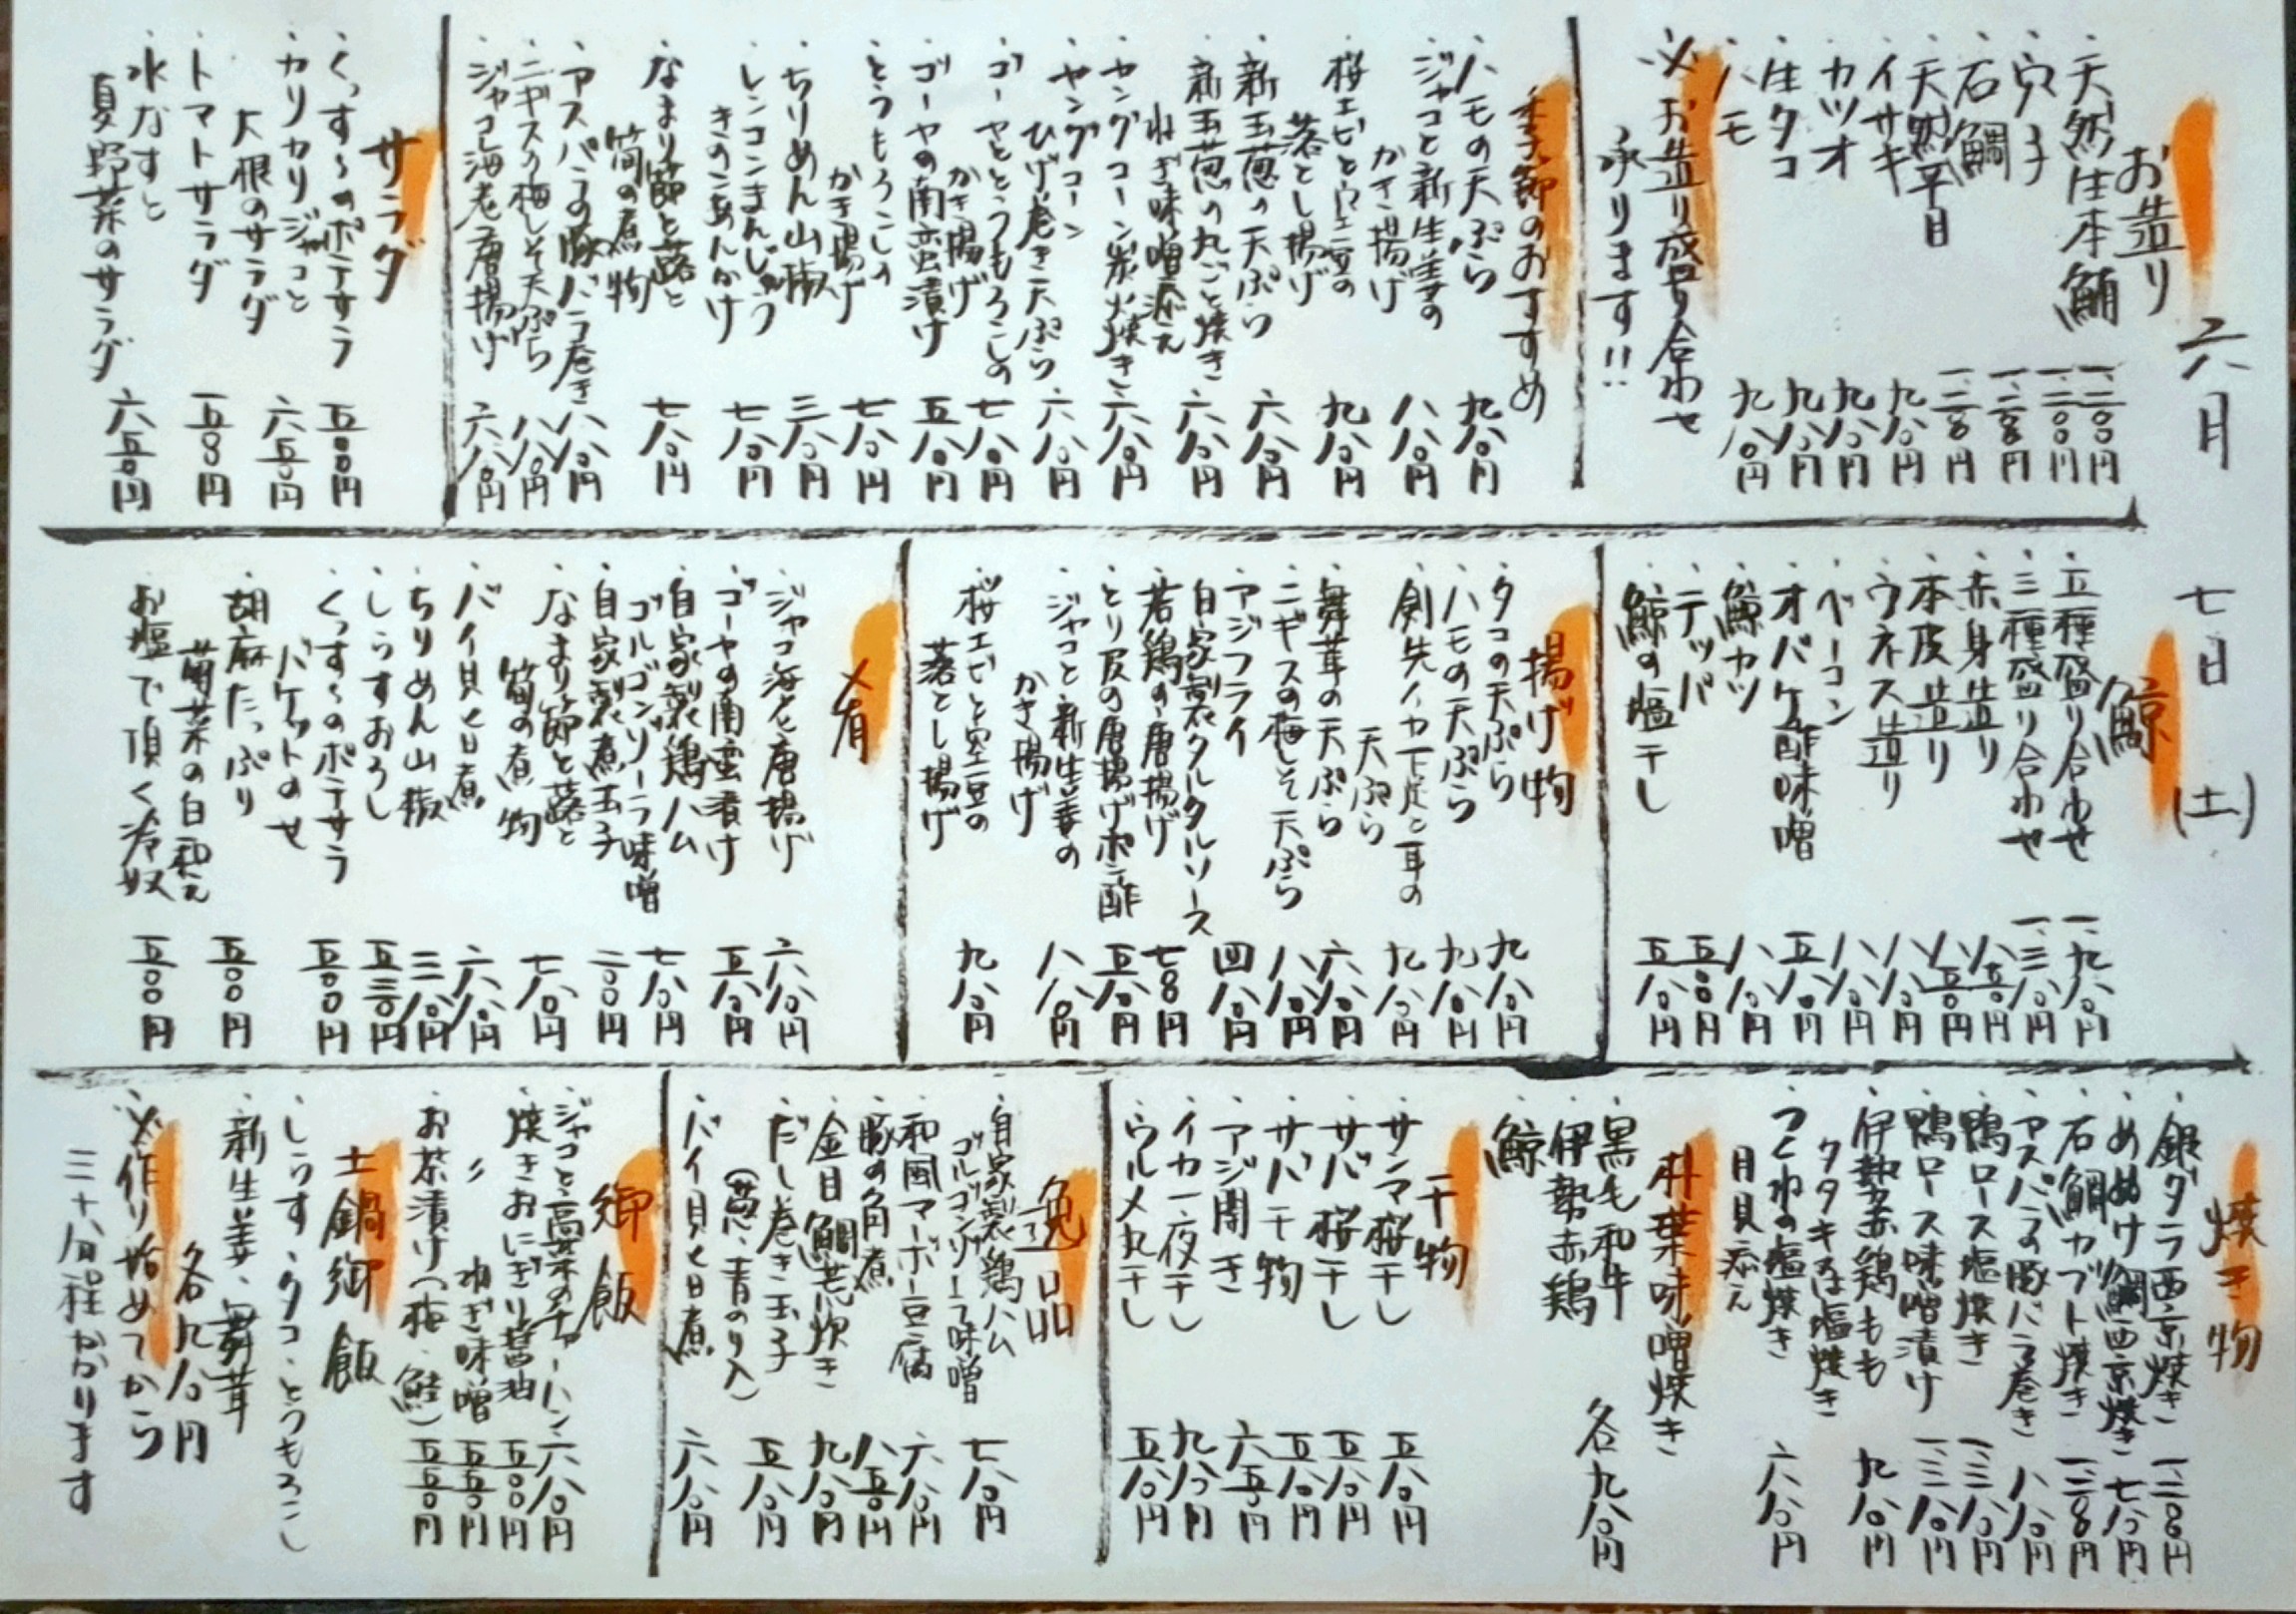 六月 七日 (土)
お造り
・天然生本鮪 一、二〇〇円
・穴子 一、二〇〇円
・石鯛 一、二八〇円
・天然平目 一、二八〇円
・イサキ 九八〇円
・カツオ 九八〇円
・生タコ 九八〇円
・ハモ 九八〇円
・※お造り盛り合わせ
承ります!!
季節のおすすめ
・ハモの天ぷら 九八〇円
・ジャコと新生姜の
かき揚げ 八八〇円
・桜エビと空豆の
落とし揚げ 九八〇円
・新玉葱の天ぷら 六八〇円
・新玉葱の丸ごと焼き
ねぎ味噌添え 六八〇円
・ヤングコーン炭火焼き 六八〇円
・ヤングコーン
ひげ巻き天ぷら 六八〇円
・ゴーヤとうもろこしの
かき揚げ 七八〇円
・ゴーヤの南蛮漬け 五八〇円
・とうもろこしの
かき揚げ 七八〇円
・ちりめん山椒 三八〇円
・レンコンまんじゅう
きのこあんかけ 七八〇円
・なまり節と蕗と
筍の煮物 七八〇円
・アスパラの豚バラ巻き 八八〇円
・ニギスの梅しそ天ぷら 八八〇円
・ジャコ海老唐揚げ 六八〇円
サラダ
・くっす〜のポテサラ 五〇〇円
・カリカリジャコと
大根のサラダ 六五〇円
・トマトサラダ 五八〇円
・水なすと
夏野菜のサラダ 六五〇円
鯨
・五種盛り合わせ 一、九八〇円
・三種盛り合わせ 一、三八〇円
・赤身造り 八五〇円
・本皮造り 八五〇円
・ウネス造り 八八〇円
・ベーコン 八八〇円
・オバケ酢味噌 五八〇円
・鯨カツ 八八〇円
・テッパ 五五〇円
・鯨の塩干し 五八〇円
揚げ物
・タコの天ぷら 九八〇円
・ハモの天ぷら 九八〇円
・剣先イカ下足と耳の
天ぷら 九八〇円
・舞茸の天ぷら 六八〇円
・ニギスの梅しそ天ぷら 八八〇円
・アジフライ
自家製タルタルソース 四八〇円
・若鶏の唐揚げ 七八〇円
・とり皮の唐揚げポン酢 五八〇円
・ジャコと新生姜の
かき揚げ 八八〇円
・桜エビと空豆の
落とし揚げ 九八〇円
肴
・ジャコ海老唐揚げ 六八〇円
・ゴーヤの南蛮漬け 五八〇円
・自家製鶏ハム
ゴルゴンゾーラ味噌 七八〇円
・自家製煮玉子 二〇〇円
・なまり節と蕗と
筍の煮物 七八〇円
・バイ貝旨煮 六八〇円
・ちりめん山椒 三八〇円
・しらすおろし 五三〇円
・くっす〜のポテサラ
バケットのせ 五〇〇円
・胡麻たっぷり
菊菜の白和え 五〇〇円
・お塩で頂く冷奴 五〇〇円
焼き物
・銀ダラ西京焼き 一、二八〇円
・めぬけ鯛西京焼き 七八〇円
・石鯛カブト焼き 一、二八〇円
・アスパラの豚バラ巻き 八八〇円
・鴨ロース塩焼き 一、三八〇円
・鴨ロース味噌漬け 一、三八〇円
・伊勢赤鶏もも
タタキ又は塩焼き 九八〇円
・つくねの塩焼き
月見添え 六八〇円
朴葉味噌焼き
・黒毛和牛
・伊勢赤鶏
・鯨
各九八〇円
干物
・サンマ桜干し 五八〇円
・サバ桜干し 五八〇円
・サバ干物 五八〇円
・アジ開き 六五〇円
・イカ一夜干し 九八〇円
・ウルメ丸干し 五八〇円
逸品
・自家製鶏ハム
ゴルゴンゾーラ味噌 七八〇円
・和風マーボー豆腐 六八〇円
・豚の角煮 八五〇円
・金目鯛荒炊き 九八〇円
・だし巻き玉子
(葱・青のり入) 五八〇円
・バイ貝旨煮 六八〇円
御飯
・ジャコと高菜のチャーハン 六八〇円
・焼きおにぎり醤油 五〇〇円
・〃 ねぎ味噌 五五〇円
・お茶漬け(梅・鮭) 五五〇円
土鍋御飯
・しらす・タコ・とうもろこし
・新生姜・舞茸
各九八〇円
・※作り始めてから
三十分程かかります